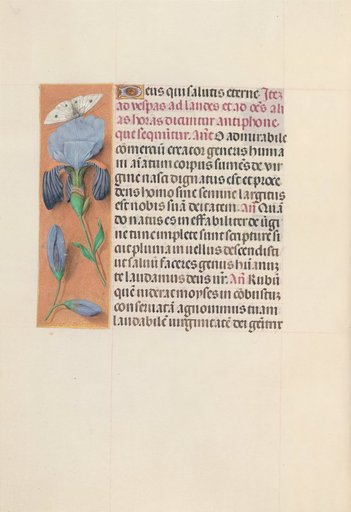 Deus qui salutis eterne. Itez
ad vesṗas ad laudes et ad oe͞s ali
as horas dicuntur antiphone
que sequūtur. Añe O admirabile
cōmertiū creator generis huma
ni aīatum corpus sumēs de vir
gine nasci dignatus est et proce
dens homo sine semine largitus
est nobis suā deitatem. An̄ Quā
do natus es ineffabiliter de v̄gi
ne tunc implete sunt scripture si
cut pluvia in vellus descendisti
ut salvū faceres genus humanū
te laudamus deus nr̄. An̄ Rubū
quē viderat moyses in cōbustū
conservatā agnovimus tuam
laudabilē virginitatē dei genitrix